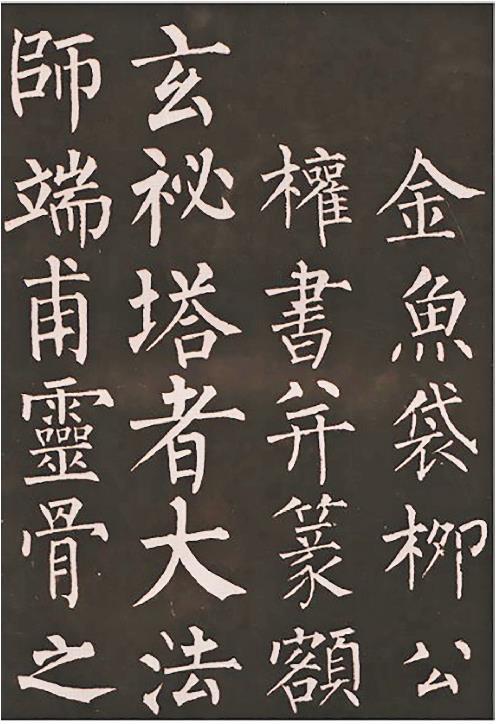 金魚袋柳公
權書并篆額
玄祕塔者大法
師端甫靈骨之